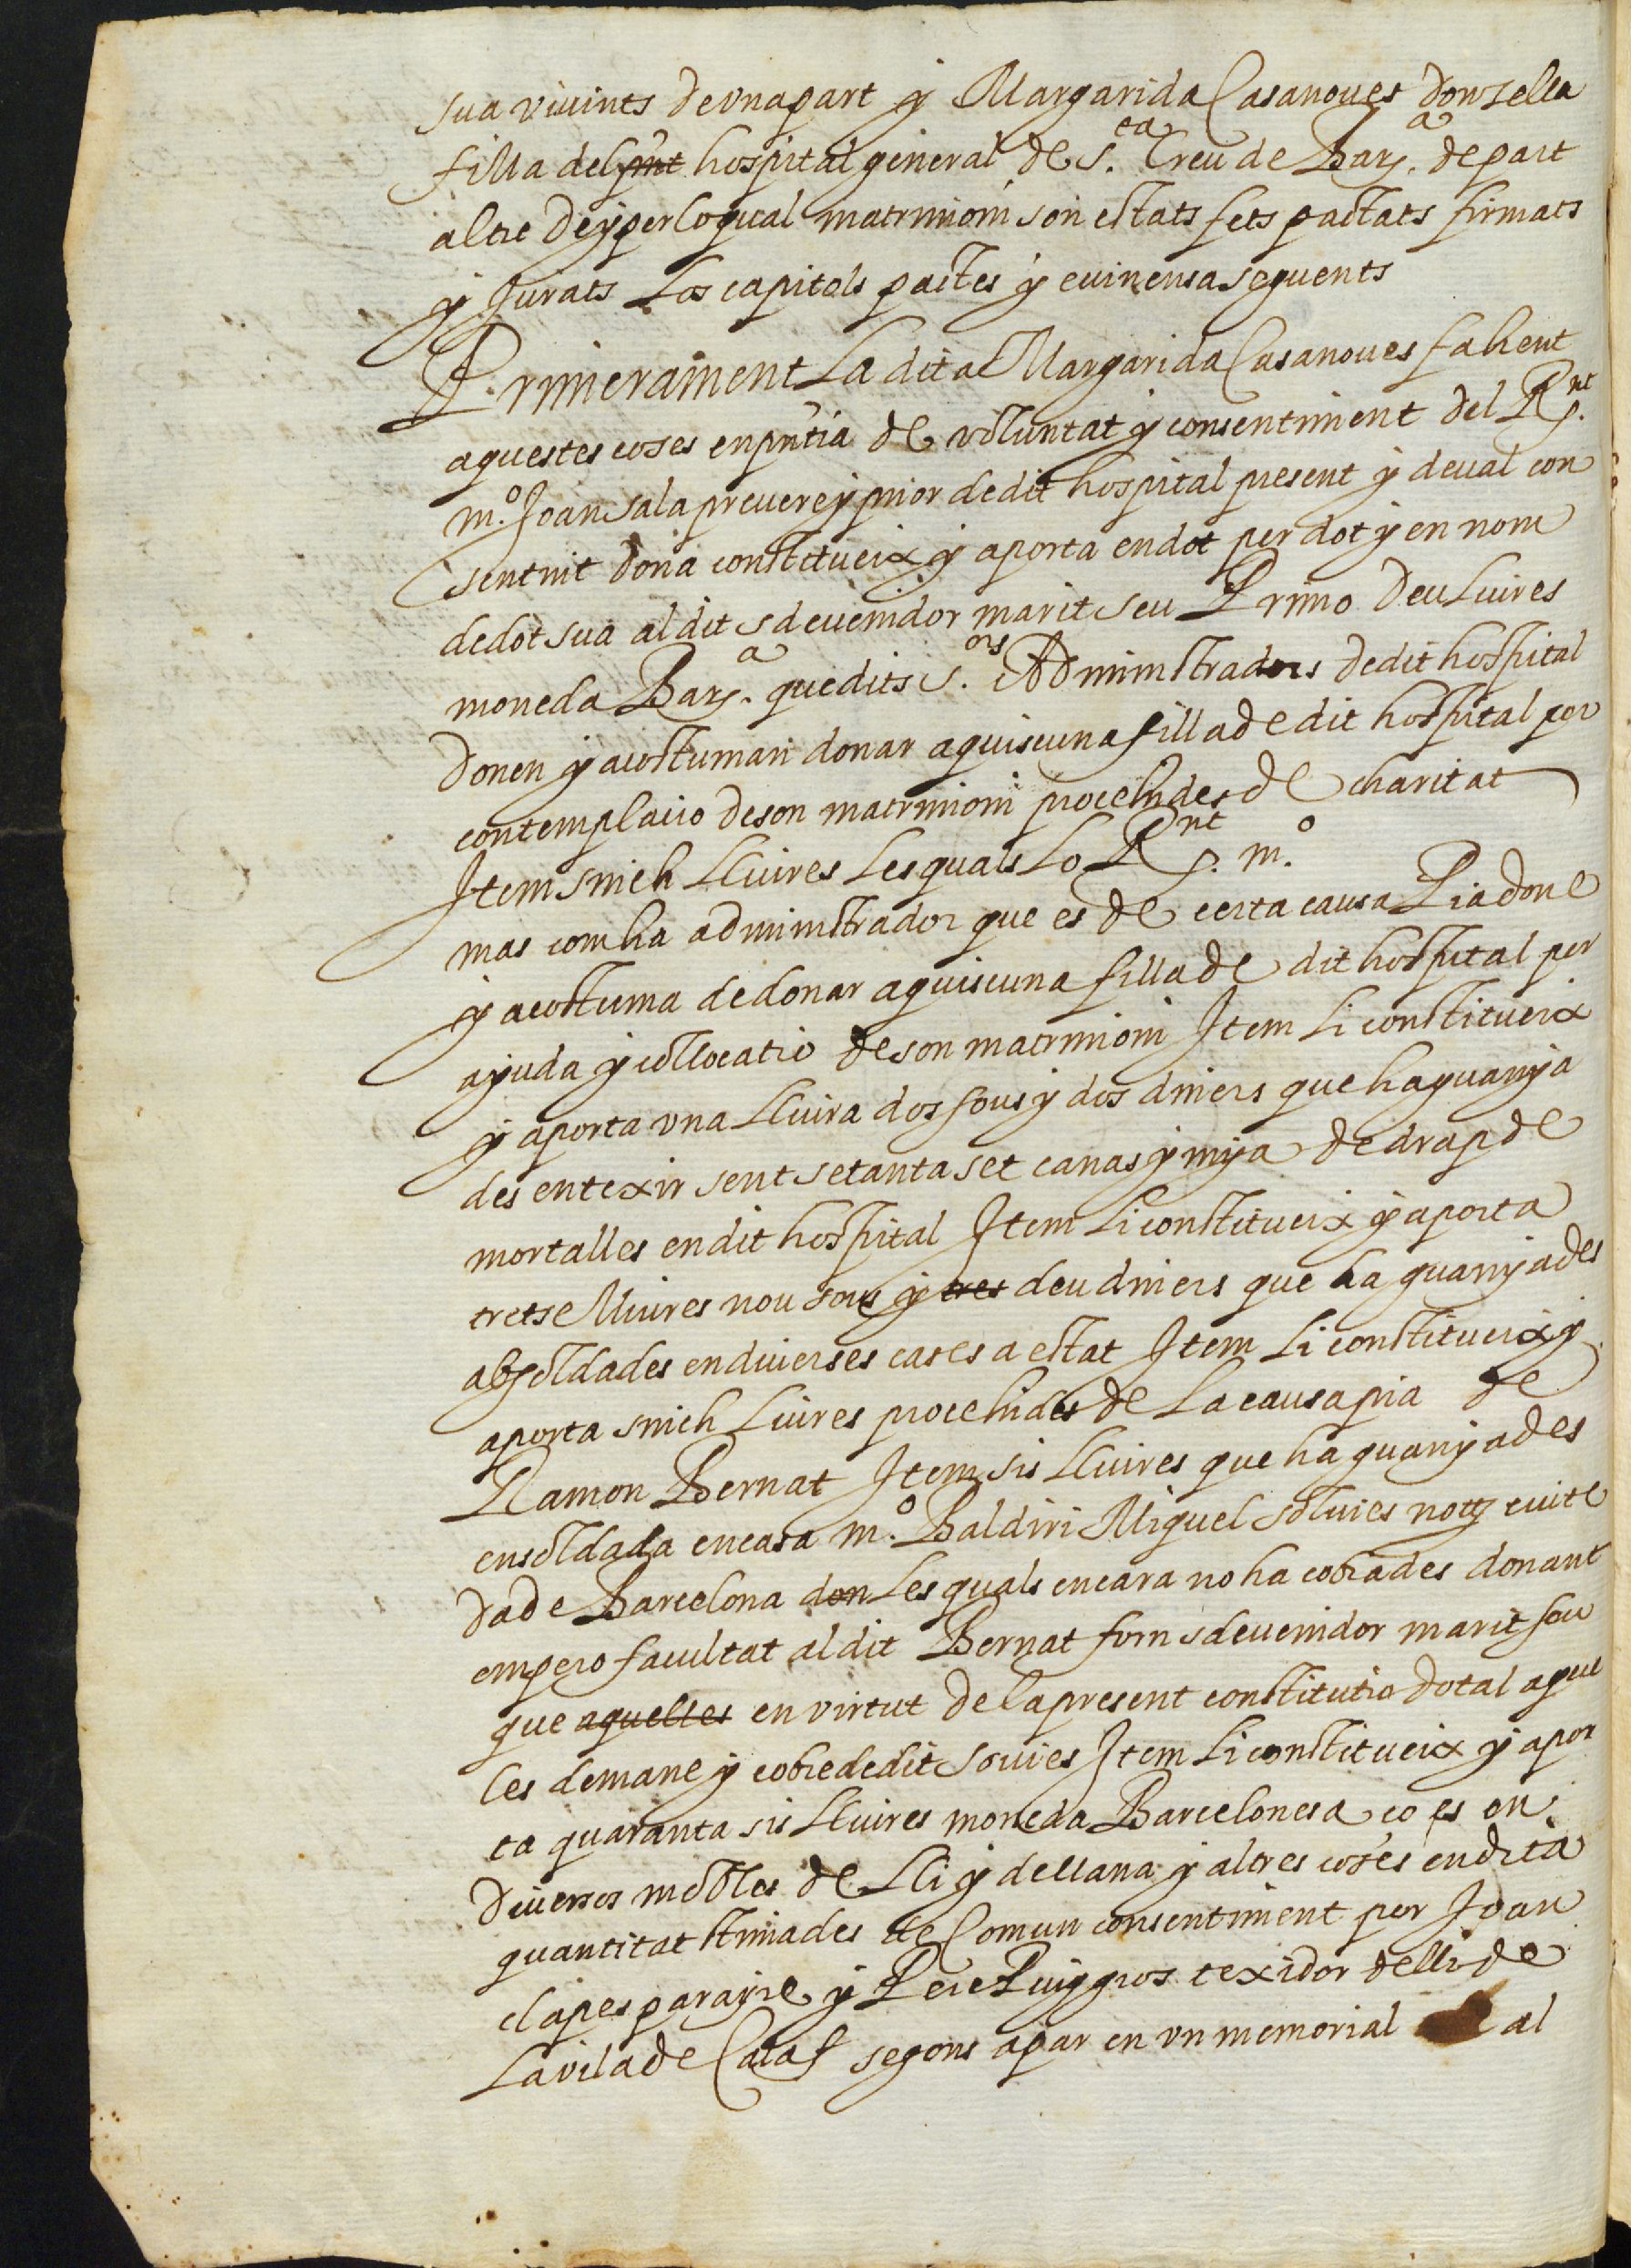 sua viuints de vna part y Margarida Casanoues donsella
filla del pñt hospital general de S.ta Creu de Barç.a de part
altre de y per lo qual matrimoni son estats fets pactats firmats
y Jurats Los capitols pactes y euinensa seguents
Primerament La dita Margarida Casanoues fahent
aquestes coses en pñtia de voluntat y consentiment del R.nt
m.o Joan Sala preuere y prior de dit hospital present y deual con
sentint dona constitueix y aporta en dot per dot y en nom
de dot sua al dit sdeuenidor marit seu Primo Deu Liures
moneda Barç.a que dits S.ors Administradors de dit hospital
donen y acostuman donar a quiscuna filla de dit hospital per
contemplacio de son matrimoni procehides de charitat
Item sinch Lliures Les quals Lo R.nt m.o
mas com ha administrador que es de certa causa Pia done
y acostuma de donar a quiscuna filla de dit hospital per
ajuda y collocatio de son matrimoni Item Li constitueix
y aporta vna Lliura dos sous y dos diners que ha guanya
des en texir sent setanta set canas y mija de drap de
mortalles en dit hospital Item Li constitueix y aporta
tretse lliures nou sous y tres deu diners que ha guanyades
ab soldades en diuerses cases a estat Item Li constitueix y
aporta sinch Liures procehides de La causa pia de
Ramon Bernat Item sis Lliures que ha guanyades
en soldada en casa m.o Baldiri Miquel Soluies notz ciute
da de Barcelona don Les quals encara no ha cobrades donant
empero facultat al dit Bernat forn sdeuenidor marit seu
que aquelles en virtut de la present constitutio dotal aque
les demane y cobre de dit Souies Item Li constitueix y apor
ta quaranta sis Lliures moneda Barcelonesa co es en
diuersos mobles de Lli y de llana y altres coses en dita
quantitat stimades de Comun consentiment per Joan
clapes parayre y Pere Puiggros texidor de lli de
La vila de Calaf segons apar en vn memorial al